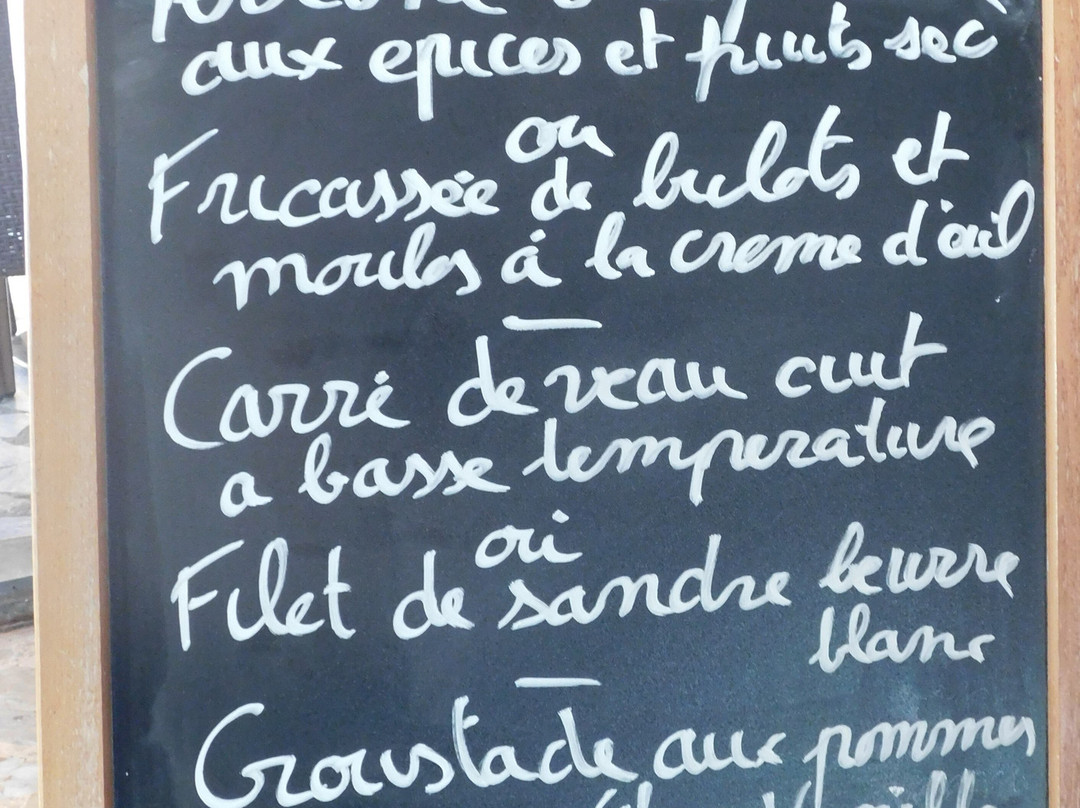 aux epices et fruits sec
ou
Fricassée de bulots et
moules à la creme d'ail
Carré de veau cuit
a basse temperature
ou
Filet de sandre beurre
blanc
Croustade aux pommes